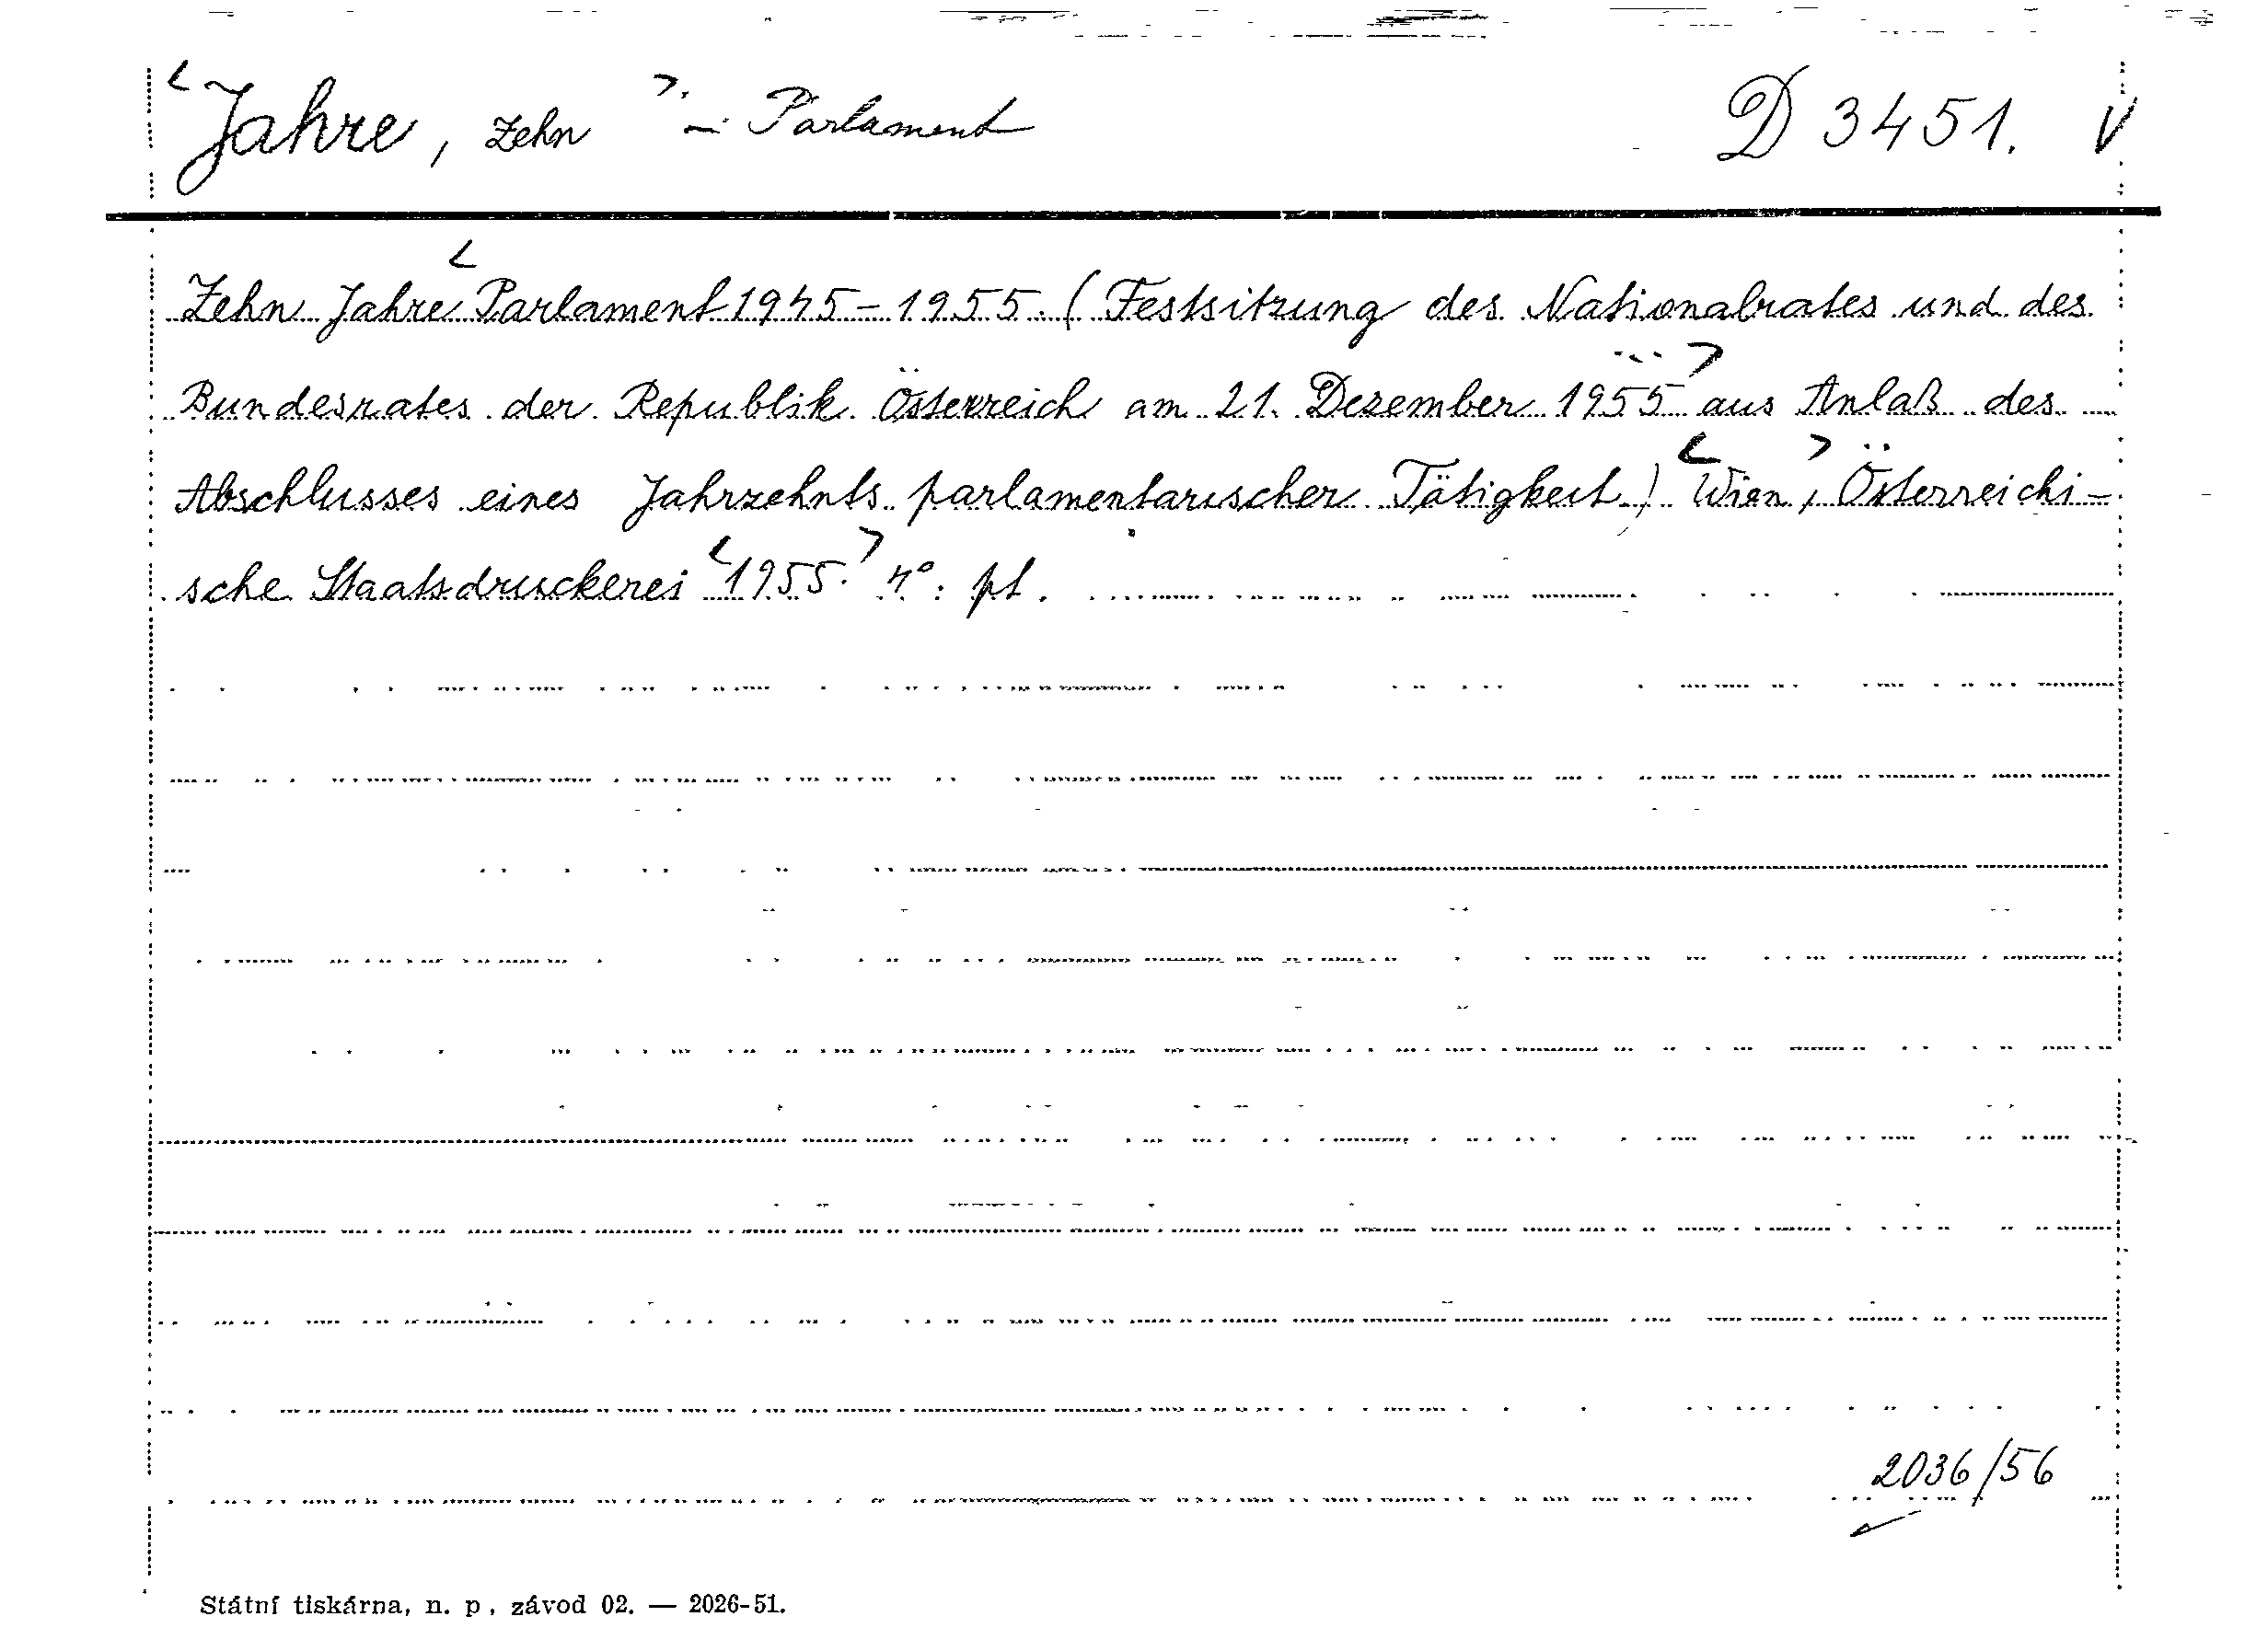 <Jahre, zehn>. – Parlament D 3451. V
Zehn Jahre <Parlament 1945-1955. (Festsitzung des Nationalrates und des
Bundesrates der Republik Österreich am 21. Dezember 1955...> aus Anlaß des
Abschlusses eines Jahrzehnts parlamentarischer Tätigkeit.) <Wien>, Österreichi-
sche Staatsdruckerei <1955.> 4°. pl.
2036/56
Státní tiskárna, n. p, závod 02. — 2026-51.